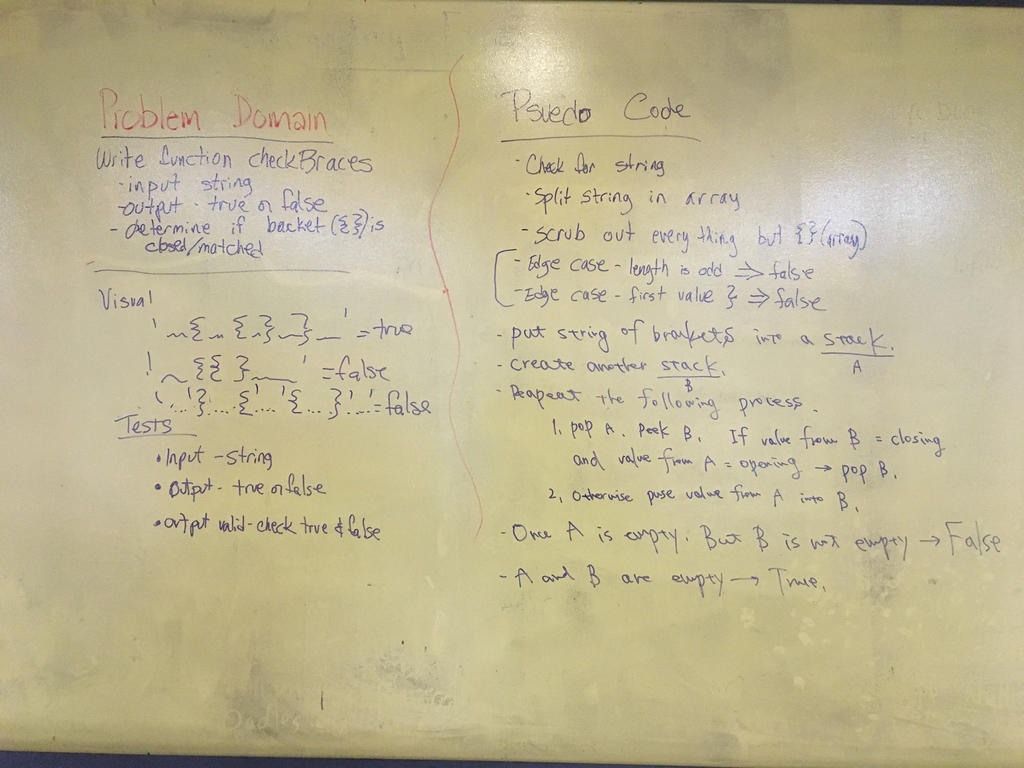 Problem Domain
Write function checkBraces
- input string
- output - true or false
- determine if backet ({}) is
closed/matched
Visual
' ~~{ ~ { ~ } ~ } __ ' = true
' ~ { { } ____ ' = false
' ... } ... { ... ' ' { ... } ' ... ' = false
Tests
• Input - String
• Output - true or false
• Output valid - check true & false
Psuedo Code
- Check for string
- Split string in array
- scrub out every thing but {} (array)
- Edge case - length is odd => false
- Edge case - first value } => false
- put string of brackets into a stack.
A
- create another stack.
B
- Reapeat the following process.
1. pop A. Peek B. If value from B = closing
and value from A = opening → pop B.
2. Otherwise puse value from A into B.
- Once A is empty. But B is not empty → False
- A and B are empty → True.